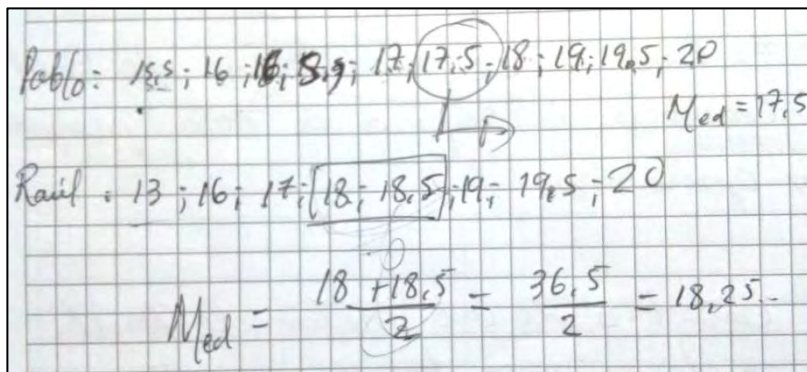 Pablo: 15,5; 16; 16,5; 17; 17,5; 18; 19; 19,5; 20
Med = 17,5
Raúl: 13; 16; 17; 18; 18,5; 19; 19,5; 20
Med = 18 + 18,5 / 2 = 36,5 / 2 = 18,25